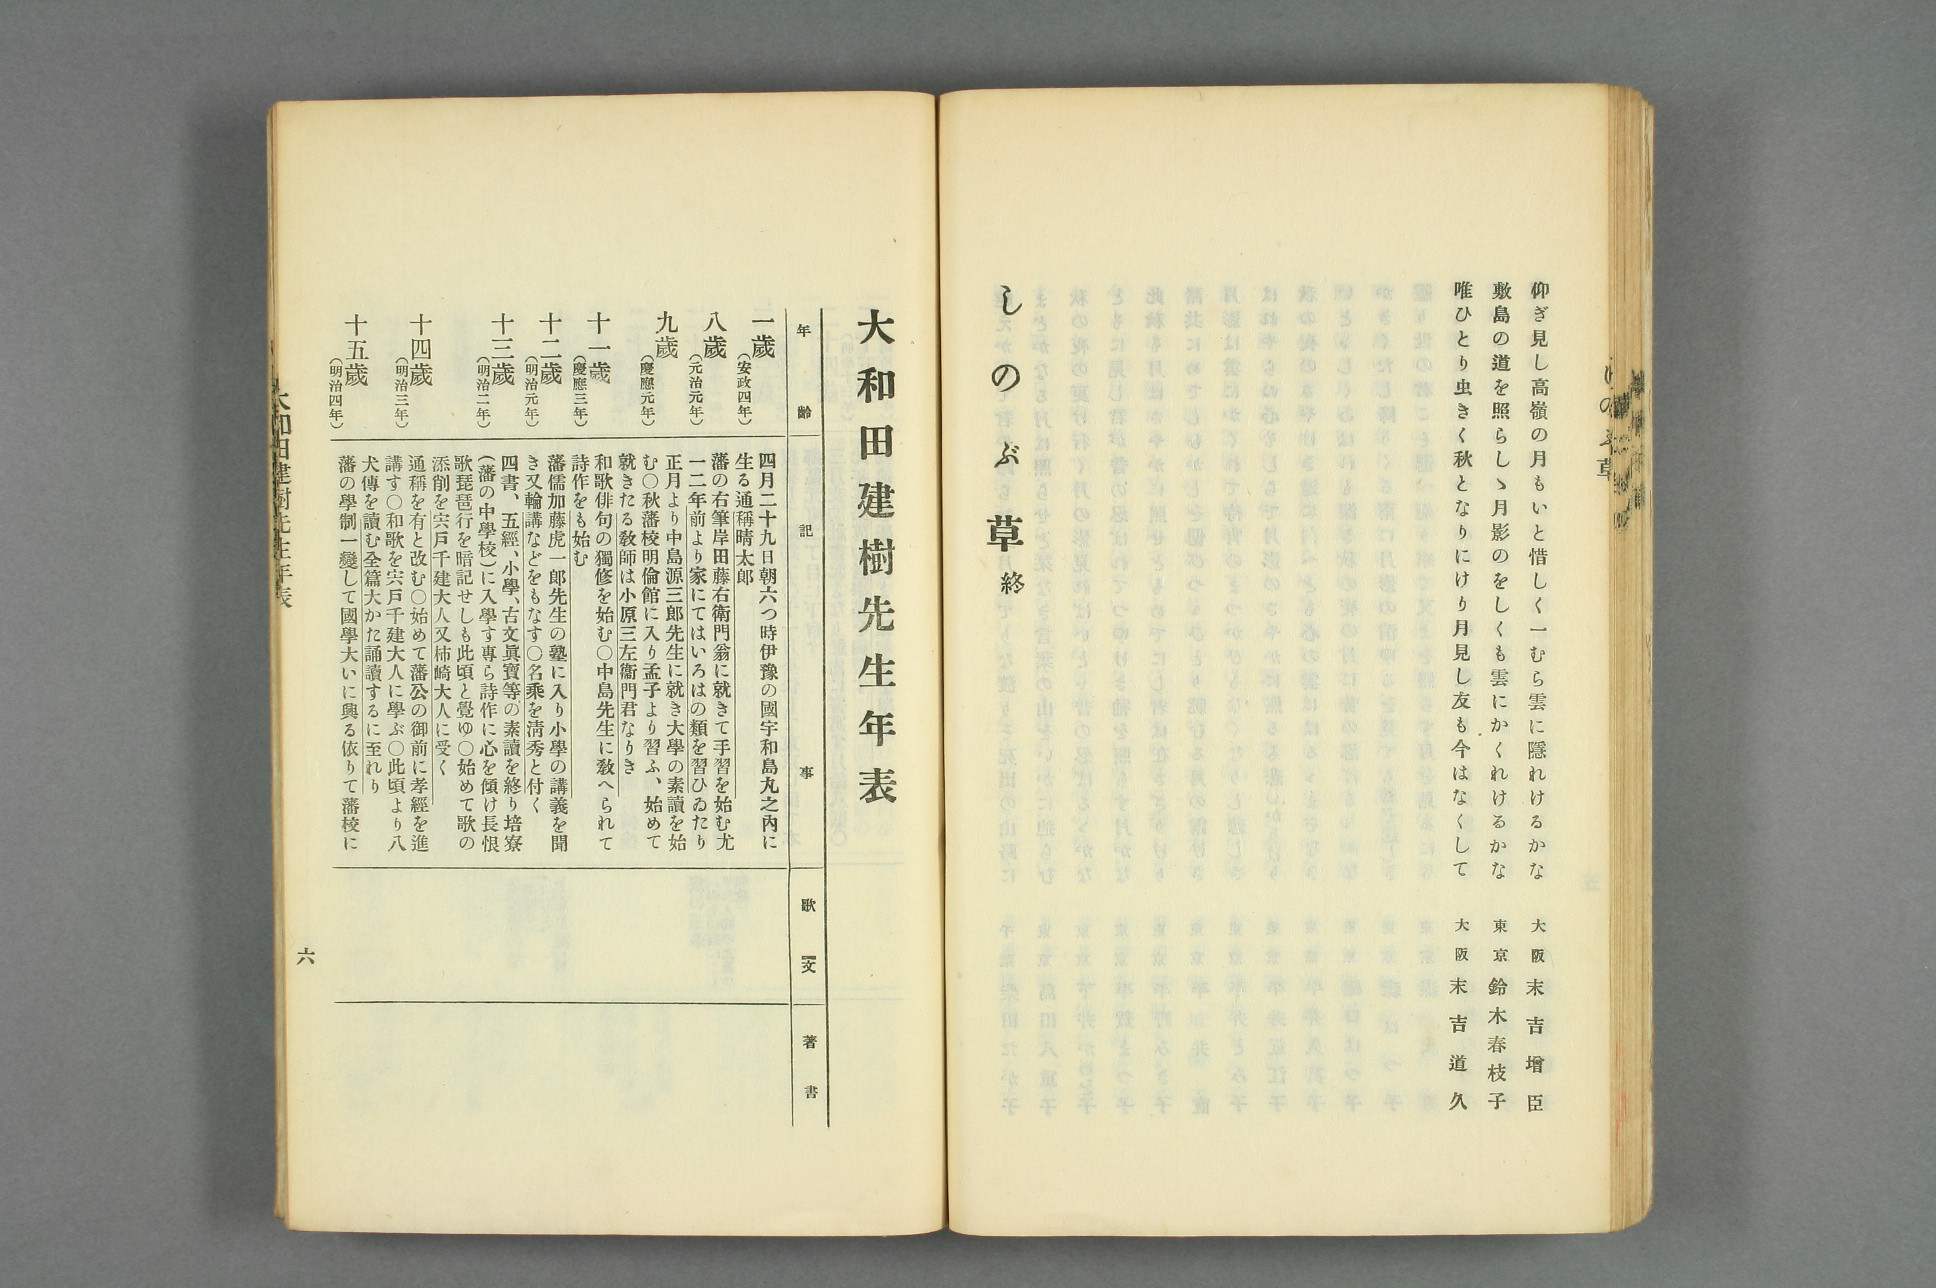 仰ぎ見し高嶺の月もいと惜しく一むら雲に隱れけるかな　大阪　末吉增臣
敷島の道を照らしゝ月影のをしくも雲にかくれけるかな　東京　鈴木春枝子
唯ひとり虫きく秋となりにけり月見し友も今はなくして　大阪　末吉道久
しのぶ草 終
大和田建樹先生年表
年齡　記事　歌文　著書
一歲（安政四年）
四月二十九日朝六つ時伊豫の國宇和島丸之內に
生る通稱晴太郎
八歲（元治元年）
藩の右筆岸田藤右衛門翁に就きて手習を始む尤
一二年前より家にてはいろはの類を習ひゐたり
九歲（慶應元年）
正月より中島源三郎先生に就き大學の素讀を始
む〇秋藩校明倫館に入り孟子より習ふ、始めて
就きたる敎師は小原三左衞門君なりき
十一歲（慶應三年）
和歌俳句の獨修を始む〇中島先生に敎へられて
詩作をも始む
十二歲（明治元年）
藩儒加藤虎一郎先生の塾に入り小學の講義を聞
き又輪講などをもなす〇名乘を淸秀と付く
十三歲（明治二年）
四書、五經、小學、古文眞寶等の素讀を終り培寮
（藩の中學校）に入學す專ら詩作に心を傾け長恨
歌琵琶行を暗記せしも此頃と覺ゆ〇始めて歌の
添削を宍戶千建大人又柿崎大人に受く
十四歲（明治三年）
通稱を有と改む〇始めて藩公の御前に孝經を進
講す〇和歌を宍戶千建大人に學ぶ〇此頃より八
犬傳を讀む全篇大かた誦讀するに至れり
十五歲（明治四年）
藩の學制一變して國學大いに興る依りて藩校に
大和田建樹先生年表
六